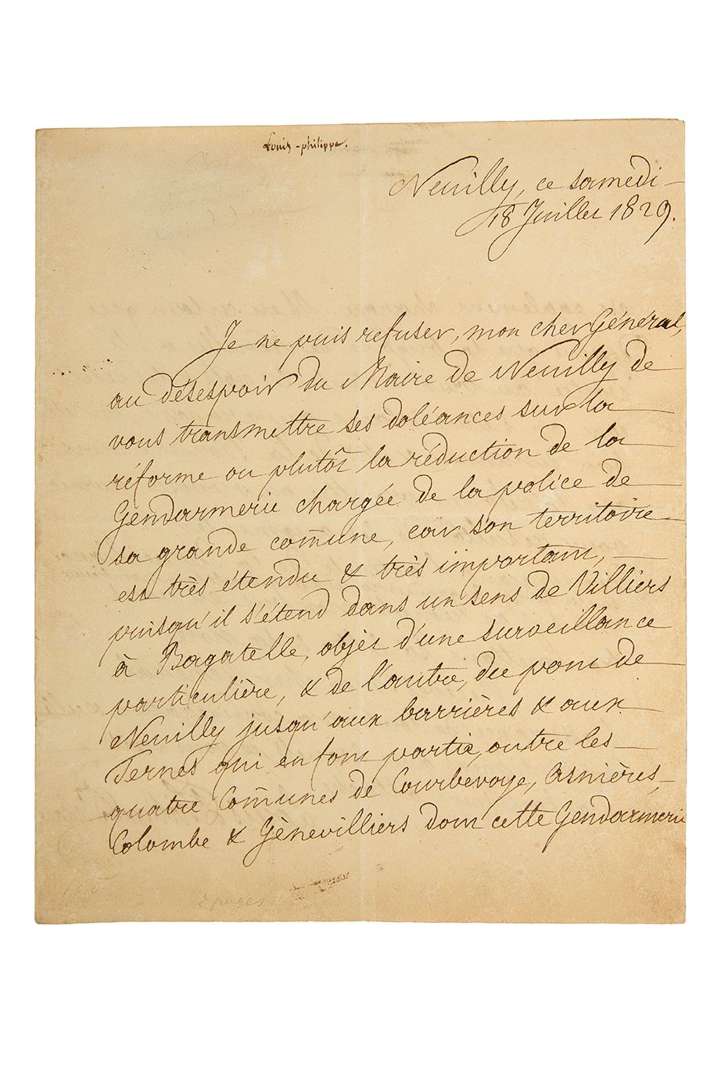 Louis-philippe.
Neuilly, ce samedi
18 Juillet 1829.
Je ne puis refuser, mon cher Général,
au désespoir du Maire de Neuilly de
vous transmettre ses doléances sur la
réforme ou plutôt la réduction de la
Gendarmerie chargée de la police de
sa grande comune, car son territoire
est très étendu & très important,
puisqu'il s'étend dans un sens de Villiers
à Bagatelle, objet d'une surveillance
particulière, & de l'autre, du pont de
Neuilly jusqu'aux barrières & aux
Ternes qui en font partie, outre les
quatre Comunes de Courbevoye, Asnières,
Colombe & Gènevilliers dont cette Gendarmerie